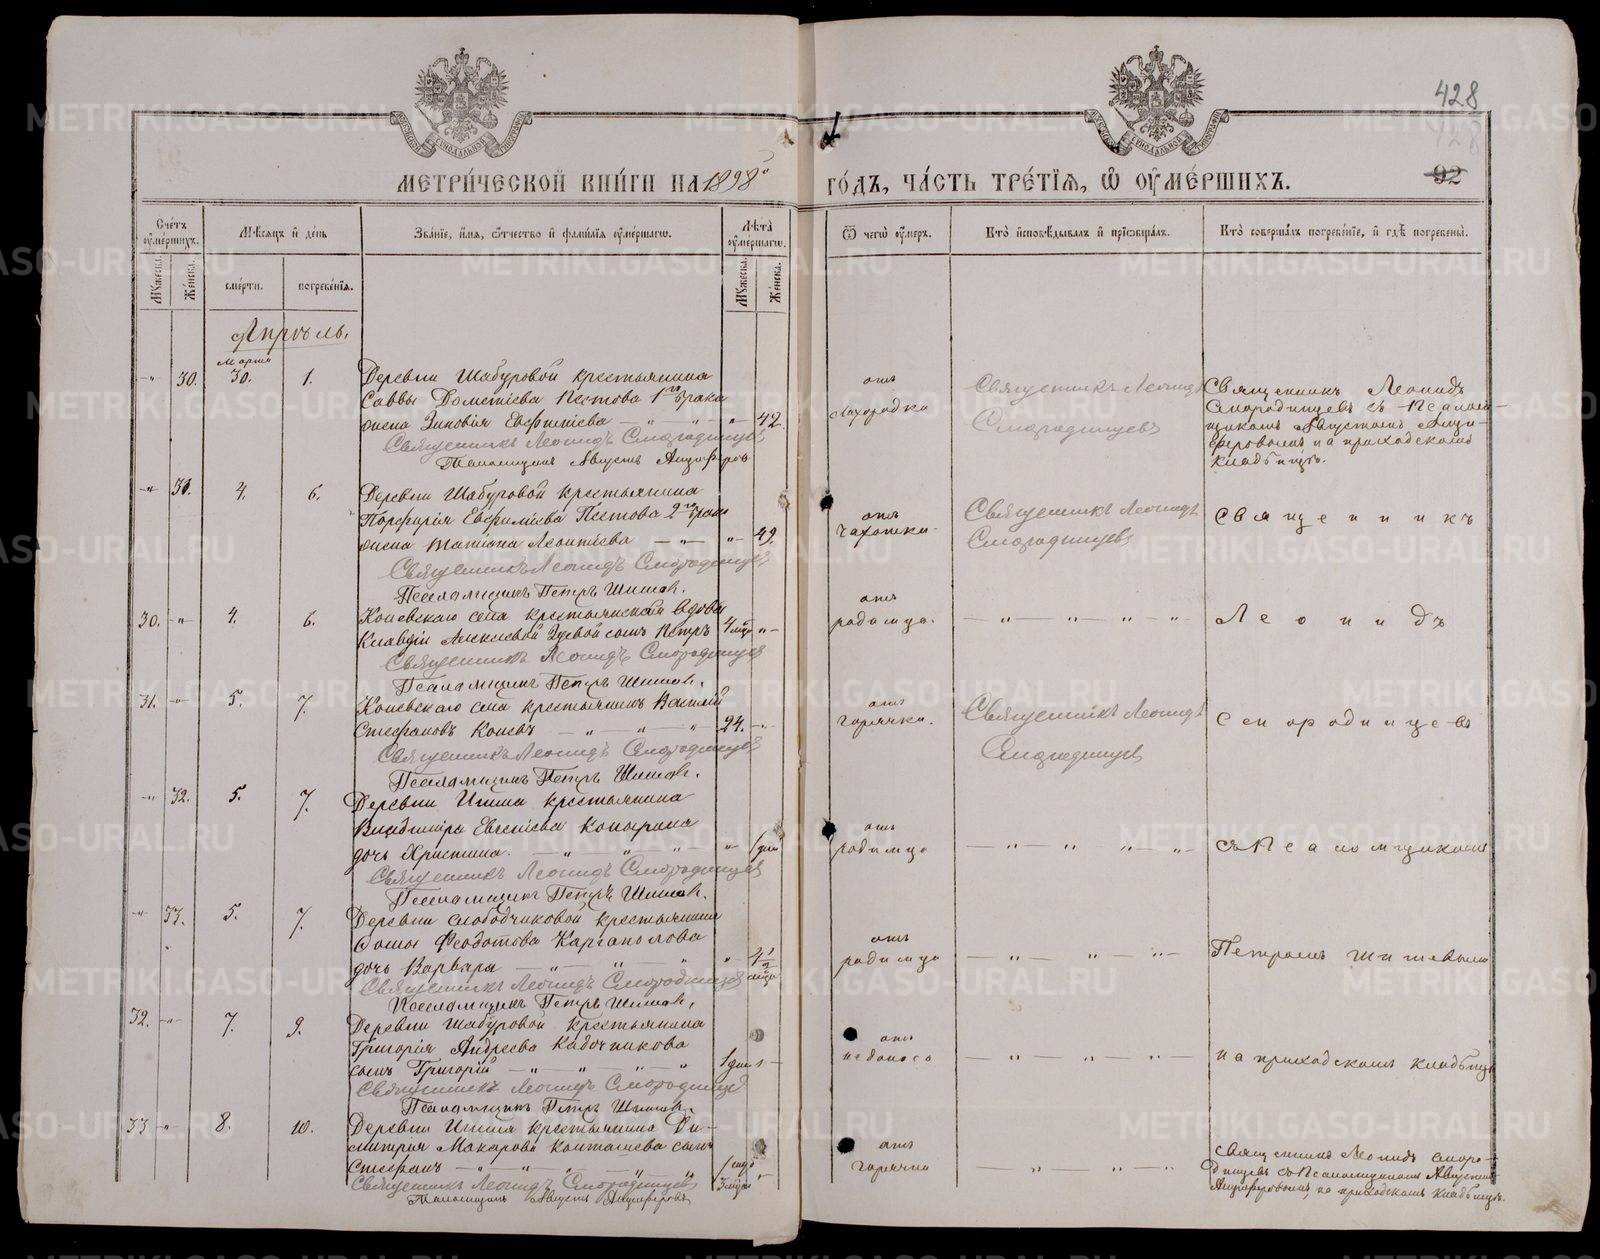 428
МЕТРИ́ЧЕСКОЙ КНИ́ГИ НА 1898й
ГО́ДЪ, ЧА́СТЬ ТРЕ́ТІѦ, Ѿ ОУМЕ́РШИХЪ.
92
Сче́тъ оуме́ршихъ.
Мѣ́сяцъ и де́нь
Зва́нїе, и́мя, ѻ́тчество и фами́лїя оуме́ршагѡ.
Лѣ́та оуме́ршагѡ.
Ѿ чегѡ̀ оу́меръ.
Кто̀ исповѣ́дывалъ и прїѡбща́лъ.
Кто̀ соверша́лъ погребе́нїе, и гдѣ̀ погребены̀.
Му́жеска.
Же́нска.
сме́рти.
погребе́нїя.
Му́жеска.
Же́нска.
Апрѣль.
Марта
-"- 30. 30. 1. Деревни Шабуровой крестьянина
Саввы Дометіева Пестова 1го брака
жена Зиновія Евфиміева — " — " — " — 42.
Священникъ Леонидъ Смородинцевъ
Псаломщикъ Августъ Анциферов
отъ
лихорадки
Священникъ Леонидъ
Смородинцевъ
Священникъ Леонидъ
Смородинцевъ съ Псалом-
щикомъ Августомъ Анци-
феровымъ на приходскомъ
кладбищѣ.
-"- 31. 4. 6. Деревни Шабуровой крестьянина
Порфирія Евфиміева Пестова 2го брака
жена Татіана Леонтіева — " — " — 49.
Священникъ Леонидъ Смородинцевъ
Псаломщикъ Петръ Шишов.
отъ
чахотки.
Священникъ Леонидъ
Смородинцевъ
Священникъ
30. -"- 4. 6. Коневскаго села крестьянской вдовы
Клавдіи Алексіевой сынъ Петръ 4 мца " -
Священникъ Леонидъ Смородинцевъ
Псаломщикъ Петръ Шишов.
отъ
родимца.
— " — " — " — " —
Леонидъ
31. -"- 5. 7. Коневскаго села крестьянинъ Василій
Стефановъ Коневъ — " — " — " 24. -"-
Священникъ Леонидъ Смородинцевъ
Псаломщикъ Петръ Шишов.
отъ
горячки.
Священникъ Леонидъ
Смородинцевъ
Смородинцевъ
-"- 32. 5. 7. Деревни Ипина крестьянина
Владиміра Евгеніева
дочь Христина. — " — " — " — 1 дня
Священникъ Леонидъ Смородинцевъ
Псаломщикъ Петръ Шишов.
отъ
родимца
— " — " — " — "
съ Псаломщикомъ
-"- 33. 5. 7. Деревни Слободчиковой крестьянина
Ѳомы Ѳеодотова Каргаполова
дочь Варвара — " — " — " " 4½ мца
Священникъ Леонидъ Смородинцевъ
Псаломщикъ Петръ Шишов.
отъ
родимца
— " — " — " —
Петромъ Шишевымъ
32. -"- 7. 9. Деревни Шабуровой крестьянина
Григорія Андреева Кадочникова
сынъ Григорій — " — " — " — " 1 дня -
Священникъ Леонидъ Смородинцевъ
Псаломщикъ Петръ Шишов.
отъ
недоноса
— " — " — " —
на приходскомъ кладбищѣ
33 -"- 8. 10. Деревни Ипина крестьянина Ди-
митрія Макарова сынъ
Стефанъ — " — " — " — " 1 годъ 3 мца "
Священникъ Леонидъ Смородинцевъ
Псаломщикъ Августъ Анциферовъ
отъ
горячки
— " — " —
Священникъ Леонидъ Сморо-
динцевъ съ Псаломщикомъ Августомъ
Анциферовымъ, на приходскомъ кладбищѣ.
METRIKI.GASO-URAL.RU